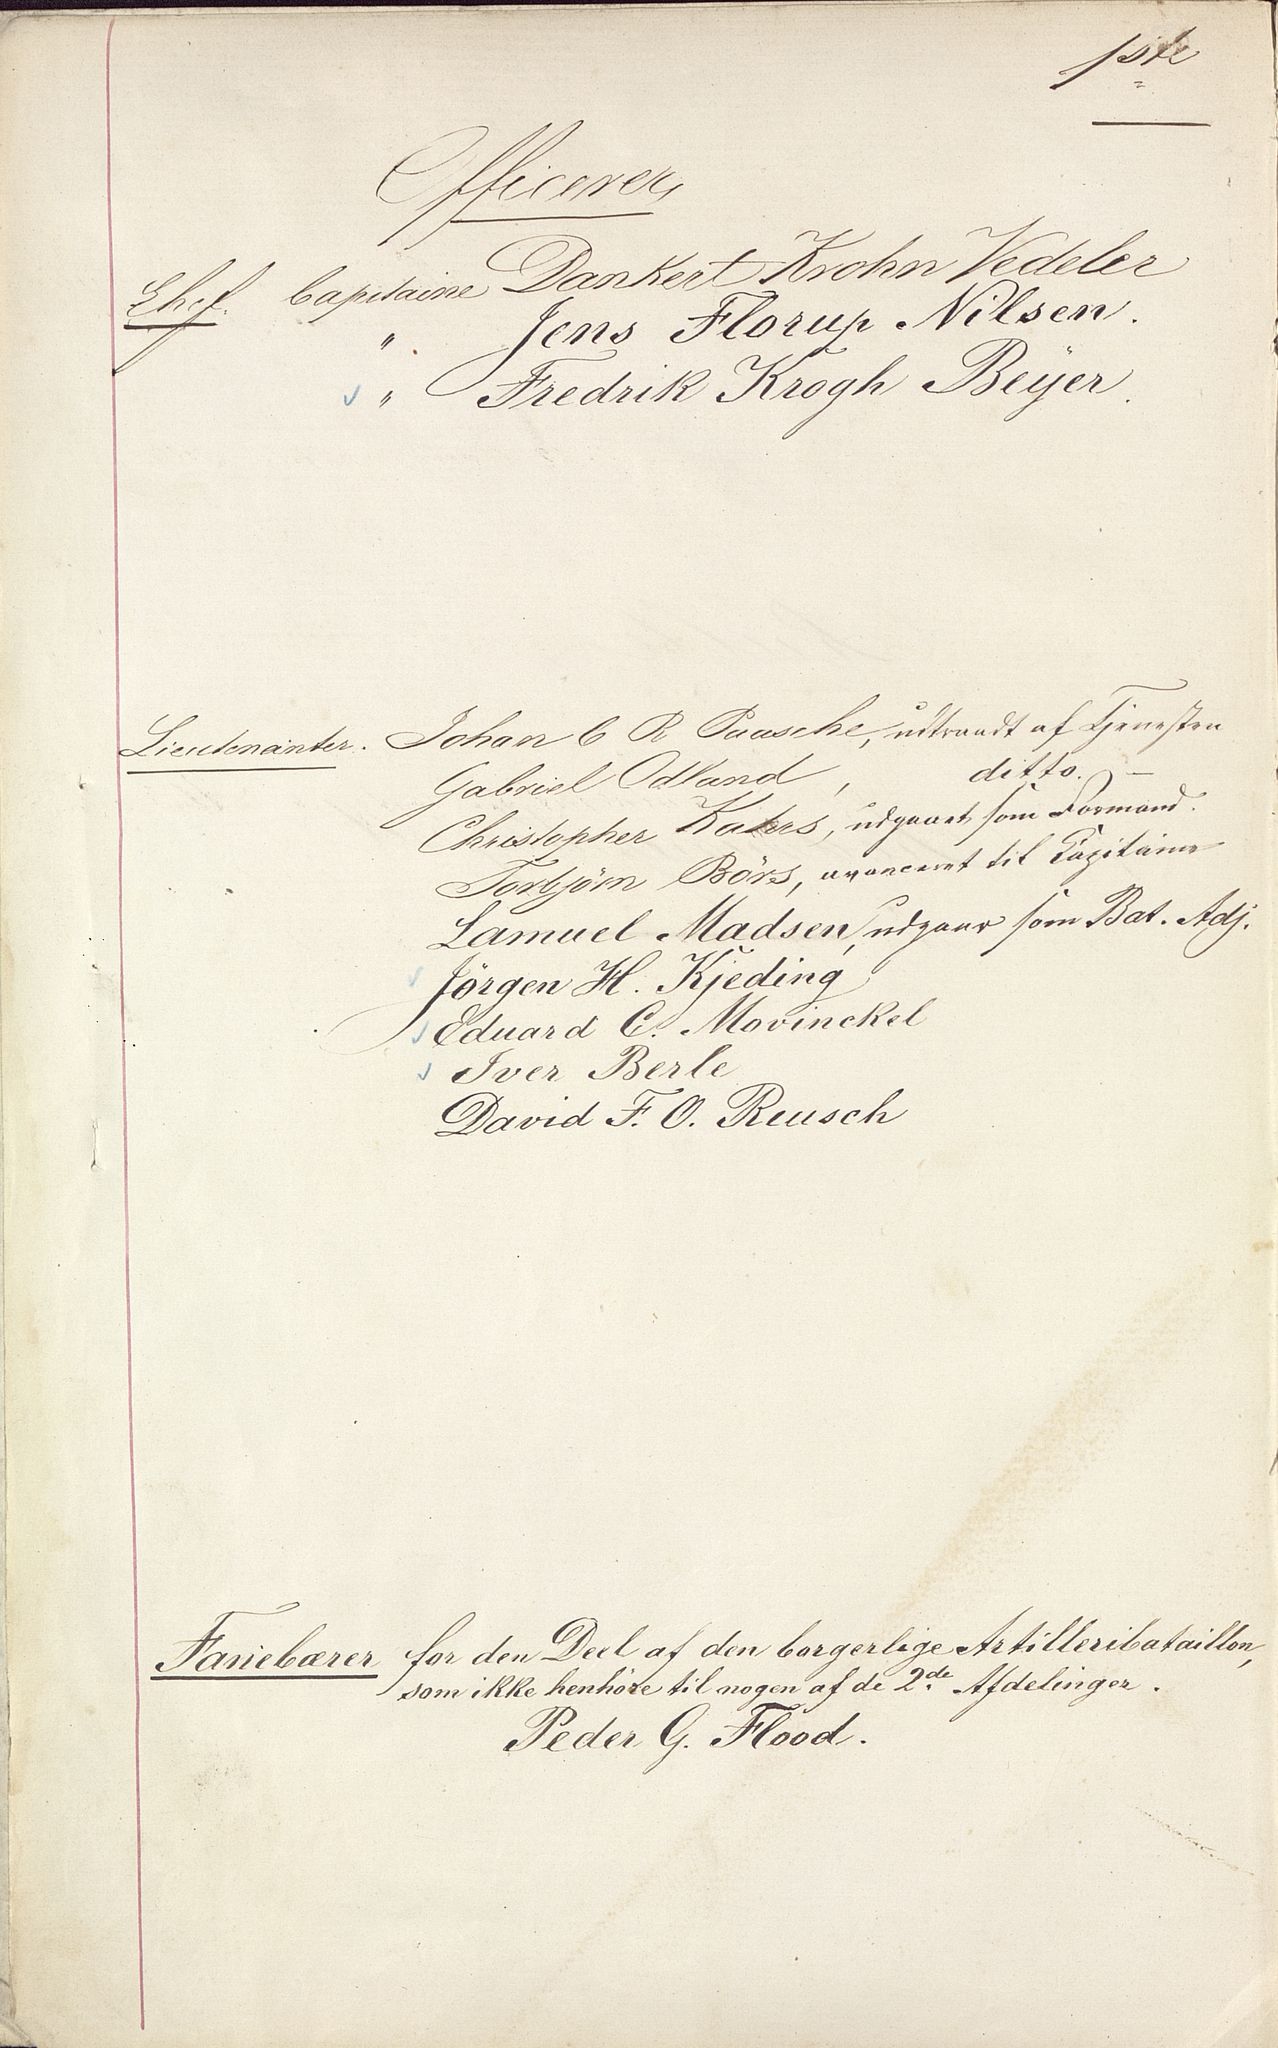 1ste
Officerer
Chef. Capitaine Dankert Krohn Vedeler
" Jens Florup Nilsen.
" Fredrik Krogh Beyer.
Lieutenanter. Johan C R Paasche, udtraadt af Tjenesten
Gabriel Odland, ditto. —
Christopher Kahrs, udgaaet som Formand.
Torbjörn Börs, avanceret til Capitaine
Samuel Madsen, udgaar som Bat. Adj.
Jörgen H. Kjeding
Eduard C. Movinckel
Iver Berle
David F. O. Reusch
Fanebærer for den Deel af den borgerlige Artilleribataillon,
som ikke henhöre til nogen af de 2de Afdelinger.
Peder G. Flood.